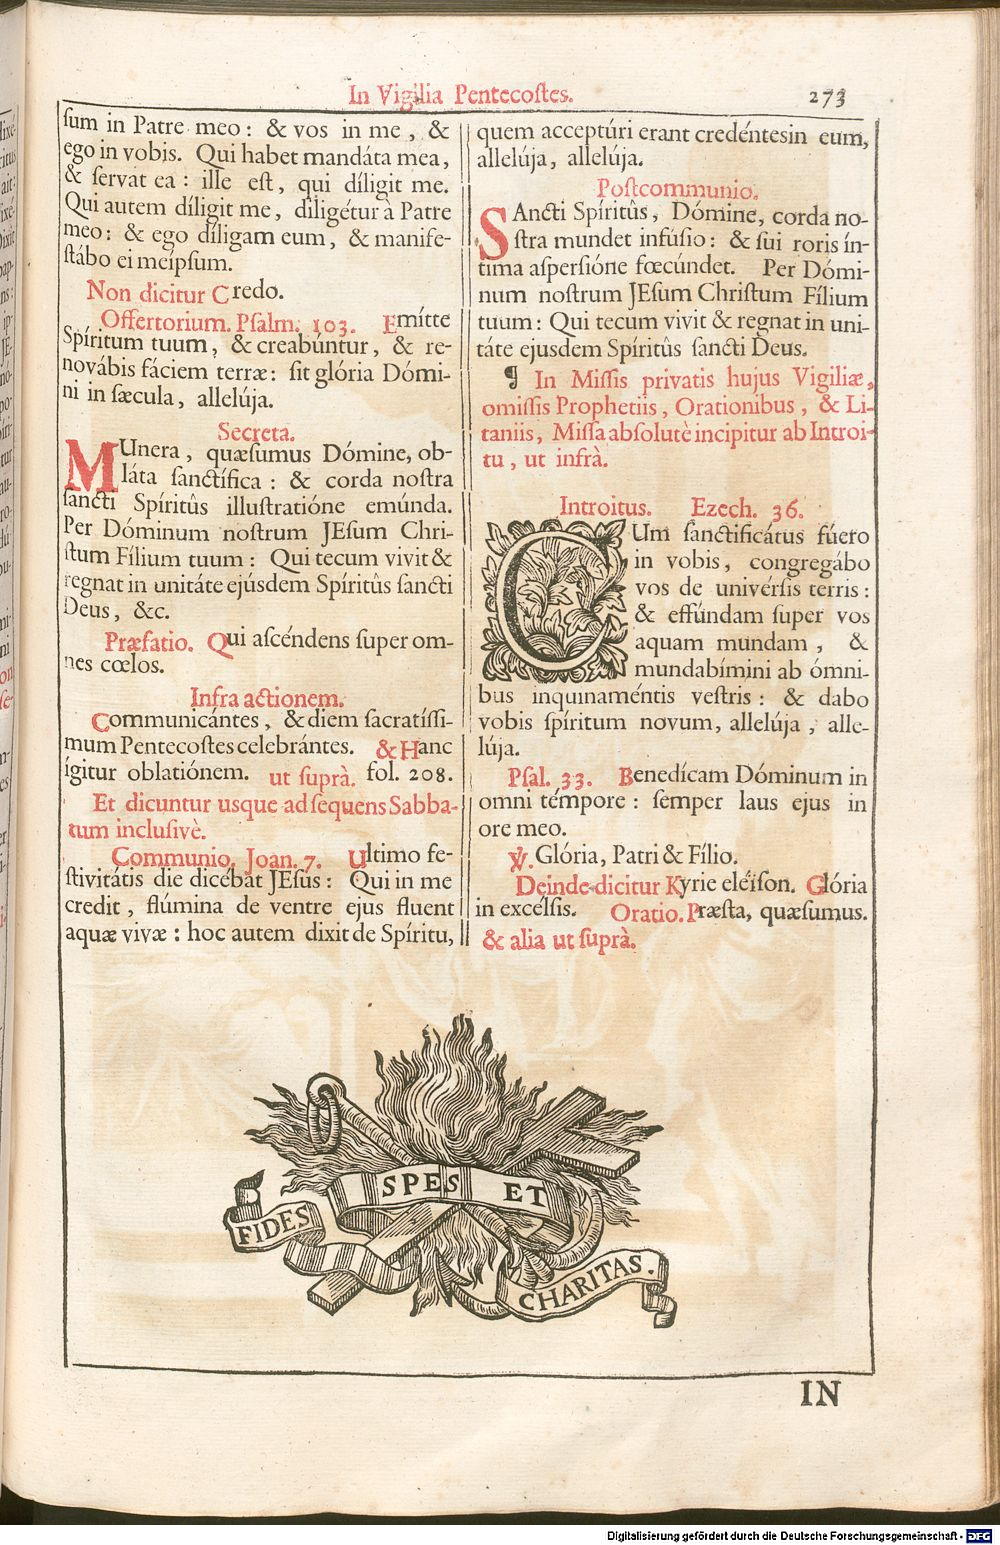 In Vigilia Pentecoſtes. 273
ſum in Patre meo : & vos in me , &
ego in vobis. Qui habet mandáta mea,
& ſervat ea : ille eſt , qui díligit me.
Qui autem díligit me , diligétur à Patre
meo : & ego díligam eum , & manife-
ſtábo ei meípſum.
Non dicitur Credo.
Offertorium. Pſalm. 103. Emítte
Spíritum tuum , & creabúntur , & re-
novábis fáciem terræ : ſit glória Dómi-
ni in ſæcula , allelúja.
Secreta.
MUnera , quæſumus Dómine, ob-
láta ſanctífica : & corda noſtra
ſancti Spíritûs illuſtratióne emúnda.
Per Dóminum noſtrum JEſum Chri-
ſtum Fílium tuum : Qui tecum vivit &
regnat in unitáte ejúsdem Spíritûs ſancti
Deus , &c.
Præfatio. Qui aſcéndens ſuper om-
nes cœlos.
Infra actionem.
Communicántes , & diem ſacratíſſi-
mum Pentecoſtes celebrántes. & Hanc
ígitur oblatiónem. ut ſuprà. fol. 208.
Et dicuntur usque ad ſequens Sabba-
tum incluſivè.
Communio. Joan. 7. Ultimo fe-
ſtivitátis die dicébat JEſus : Qui in me
credit , flúmina de ventre ejus fluent
aquæ vivæ : hoc autem dixit de Spíritu,
quem acceptúri erant credéntesin eum,
allelúja , allelúja.
Poſtcommunio.
SAncti Spíritûs , Dómine, corda no-
ſtra mundet infúſio : & ſui roris ín-
tima aſperſióne fœcúndet. Per Dómi-
num noſtrum JEſum Chriſtum Fílium
tuum : Qui tecum vivit & regnat in uni-
táte ejusdem Spíritûs ſancti Deus.
¶ In Miſſis privatis hujus Vigiliæ,
omiſſis Prophetiis , Orationibus , & Li-
taniis , Miſſa abſolutè incipitur ab Introi-
tu , ut infrà.
Introitus. Ezech. 36.
CUm ſanctificátus fúero
in vobis , congregábo
vos de univérſis terris :
& effúndam ſuper vos
aquam mundam , &
mundabímini ab ómni-
bus inquinaméntis veſtris : & dabo
vobis ſpíritum novum, allelúja , alle-
lúja.
Pſal. 33. Benedícam Dóminum in
omni témpore : ſemper laus ejus in
ore meo.
℣. Glória, Patri & Fílio.
Deinde dicitur Kyrie eléiſon. Glória
in excélſis. Oratio. Præſta, quæſumus.
& alia ut ſuprà.
FIDES SPES ET CHARITAS.
IN
Digitalisierung gefördert durch die Deutsche Forschungsgemeinschaft - DFG